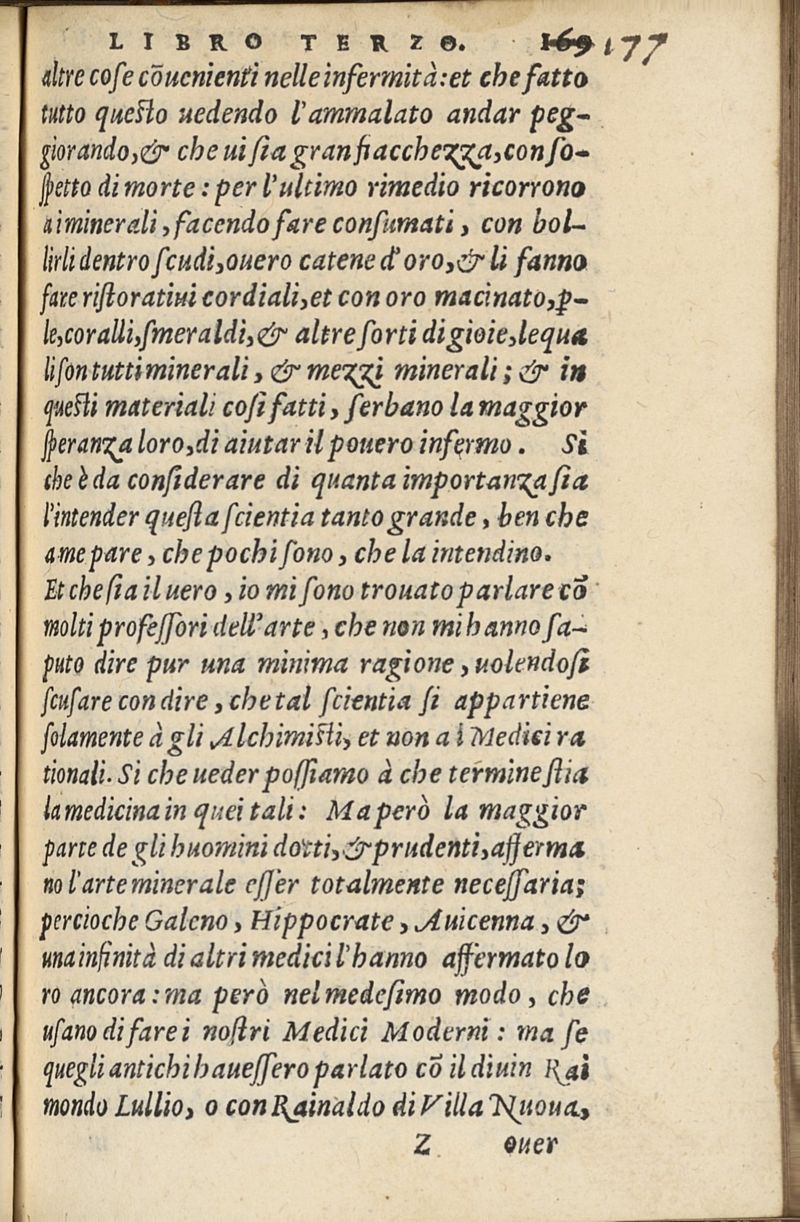 LIBRO TERZO. 169 177
altre cose cōuenienti nelle infermità: et che fatto
tutto questo uedendo l'ammalato andar peg-
giorando, & che ui sia gran fiacchezza, con so-
spetto di morte: per l'ultimo rimedio ricorrono
ai minerali, facendo fare consumati, con bol-
lirli dentro scudi, ouero catene d'oro, & li fanno
fare ristoratiui cordiali, et con oro macinato, ꝑ-
le, coralli, smeraldi, & altre sorti di gioie, le qua
li son tutti minerali, & mezzi minerali; & in
questi materiali cosi fatti, serbano la maggior
speranza loro, di aiutar il pouero infermo. Si
che è da considerare di quanta importanza sia
l'intender questa scientia tanto grande, ben che
a me pare, che pochi sono, che la intendino.
Et che sia il uero, io mi sono trouato parlare cō
molti professori dell'arte, che non mi hanno sa-
puto dire pur una minima ragione, uolendosi
scusare con dire, che tal scientia si appartiene
solamente à gli Alchimisti, et non a i Medici ra
tionali. Si che ueder possiamo à che termine stia
la medicina in quei tali: Ma però la maggior
parte de gli huomini dotti, & prudenti, afferma
no l'arte minerale esser totalmente necessaria;
percioche Galeno, Hippocrate, Auicenna, &
una infinità di altri medici l'hanno affermato lo
ro ancora: ma però nel medesimo modo, che
usano di fare i nostri Medici Moderni: ma se
quegli antichi hauessero parlato cō il diuin Rai
mondo Lullio, o con Rainaldo di Villa Nuoua,
Z ouer